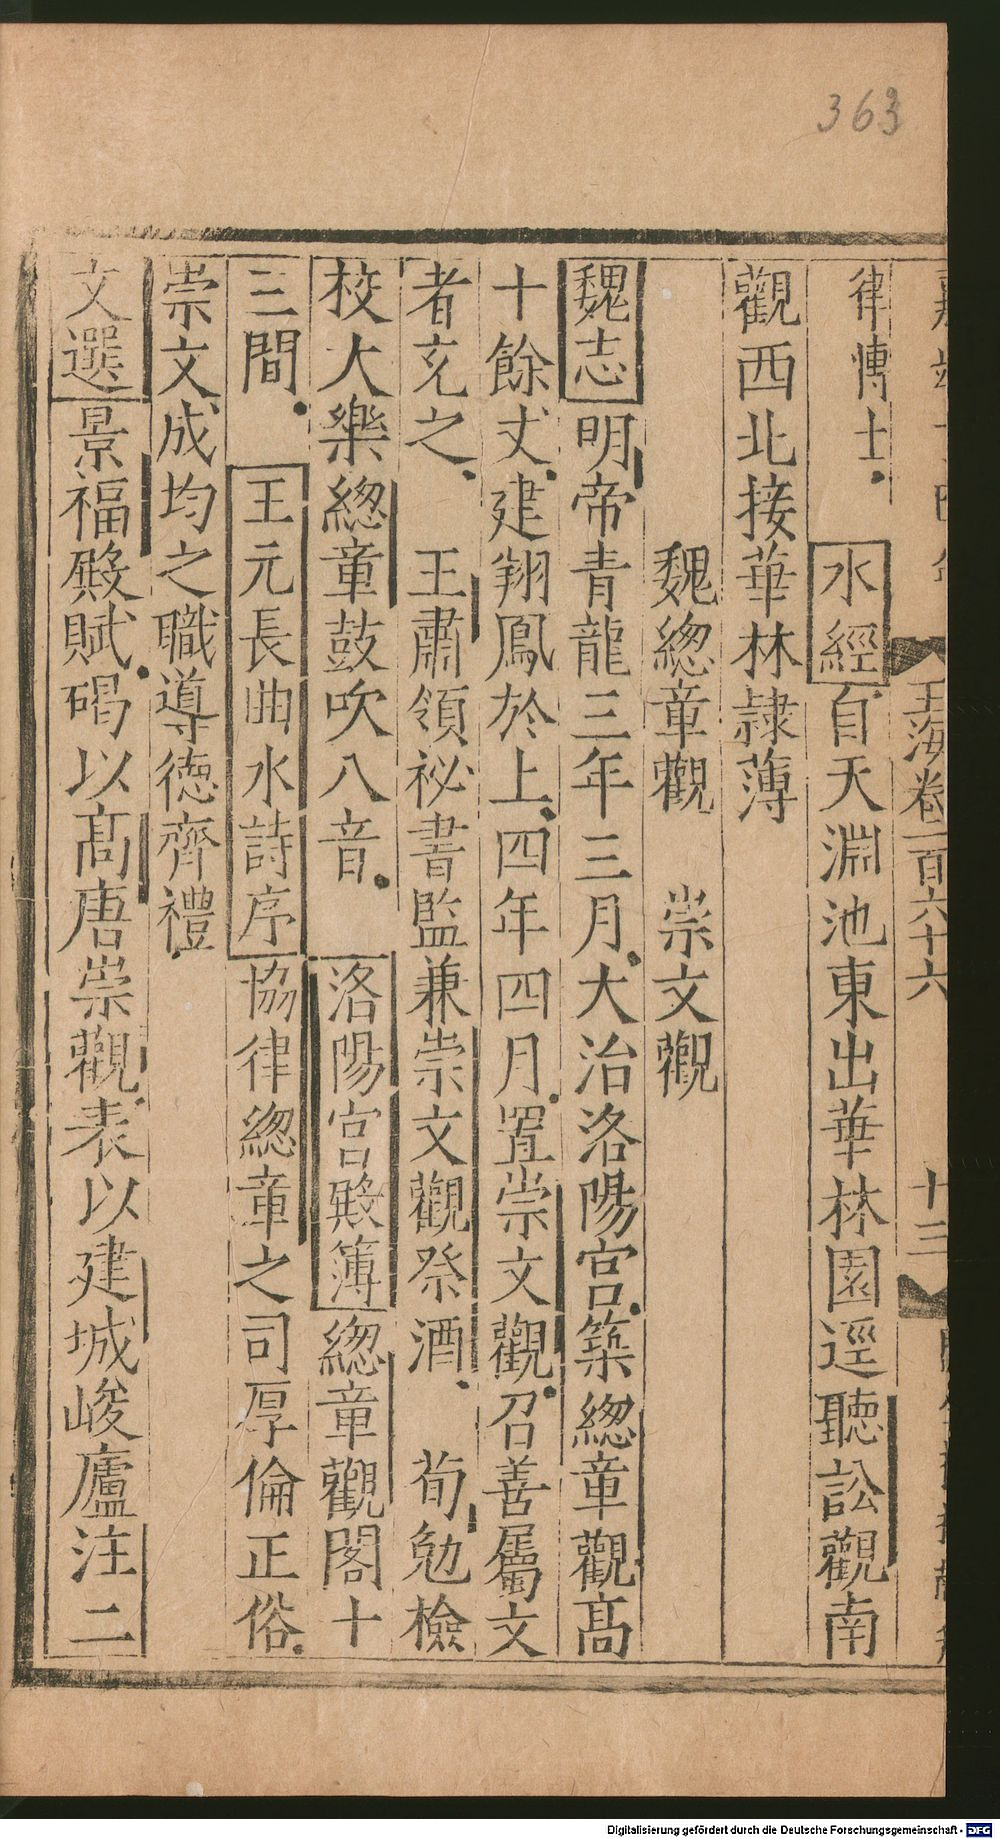 363
玉海卷一百六十六
十三
律博士 水經自天淵池東出華林園逕聽訟觀南
觀西北接華林隷薄
魏緫章觀 崇文觀
魏志明帝青龍三年三月大治洛陽宮築緫章觀髙
十餘丈建翔鳳於上四年四月置崇文觀召善屬文
者充之 王肅領祕書監兼崇文觀祭酒 荀勉檢
校大樂緫章鼓吹八音 洛陽宮殿簿緫章觀閣十
三間 王元長曲水詩序協律緫章之司厚倫正俗
崇文成均之職導德齊禮
文選景福殿賦碣以髙唐崇觀表以建城峻廬注二
Digitalisierung gefördert durch die Deutsche Forschungsgemeinschaft - DFG